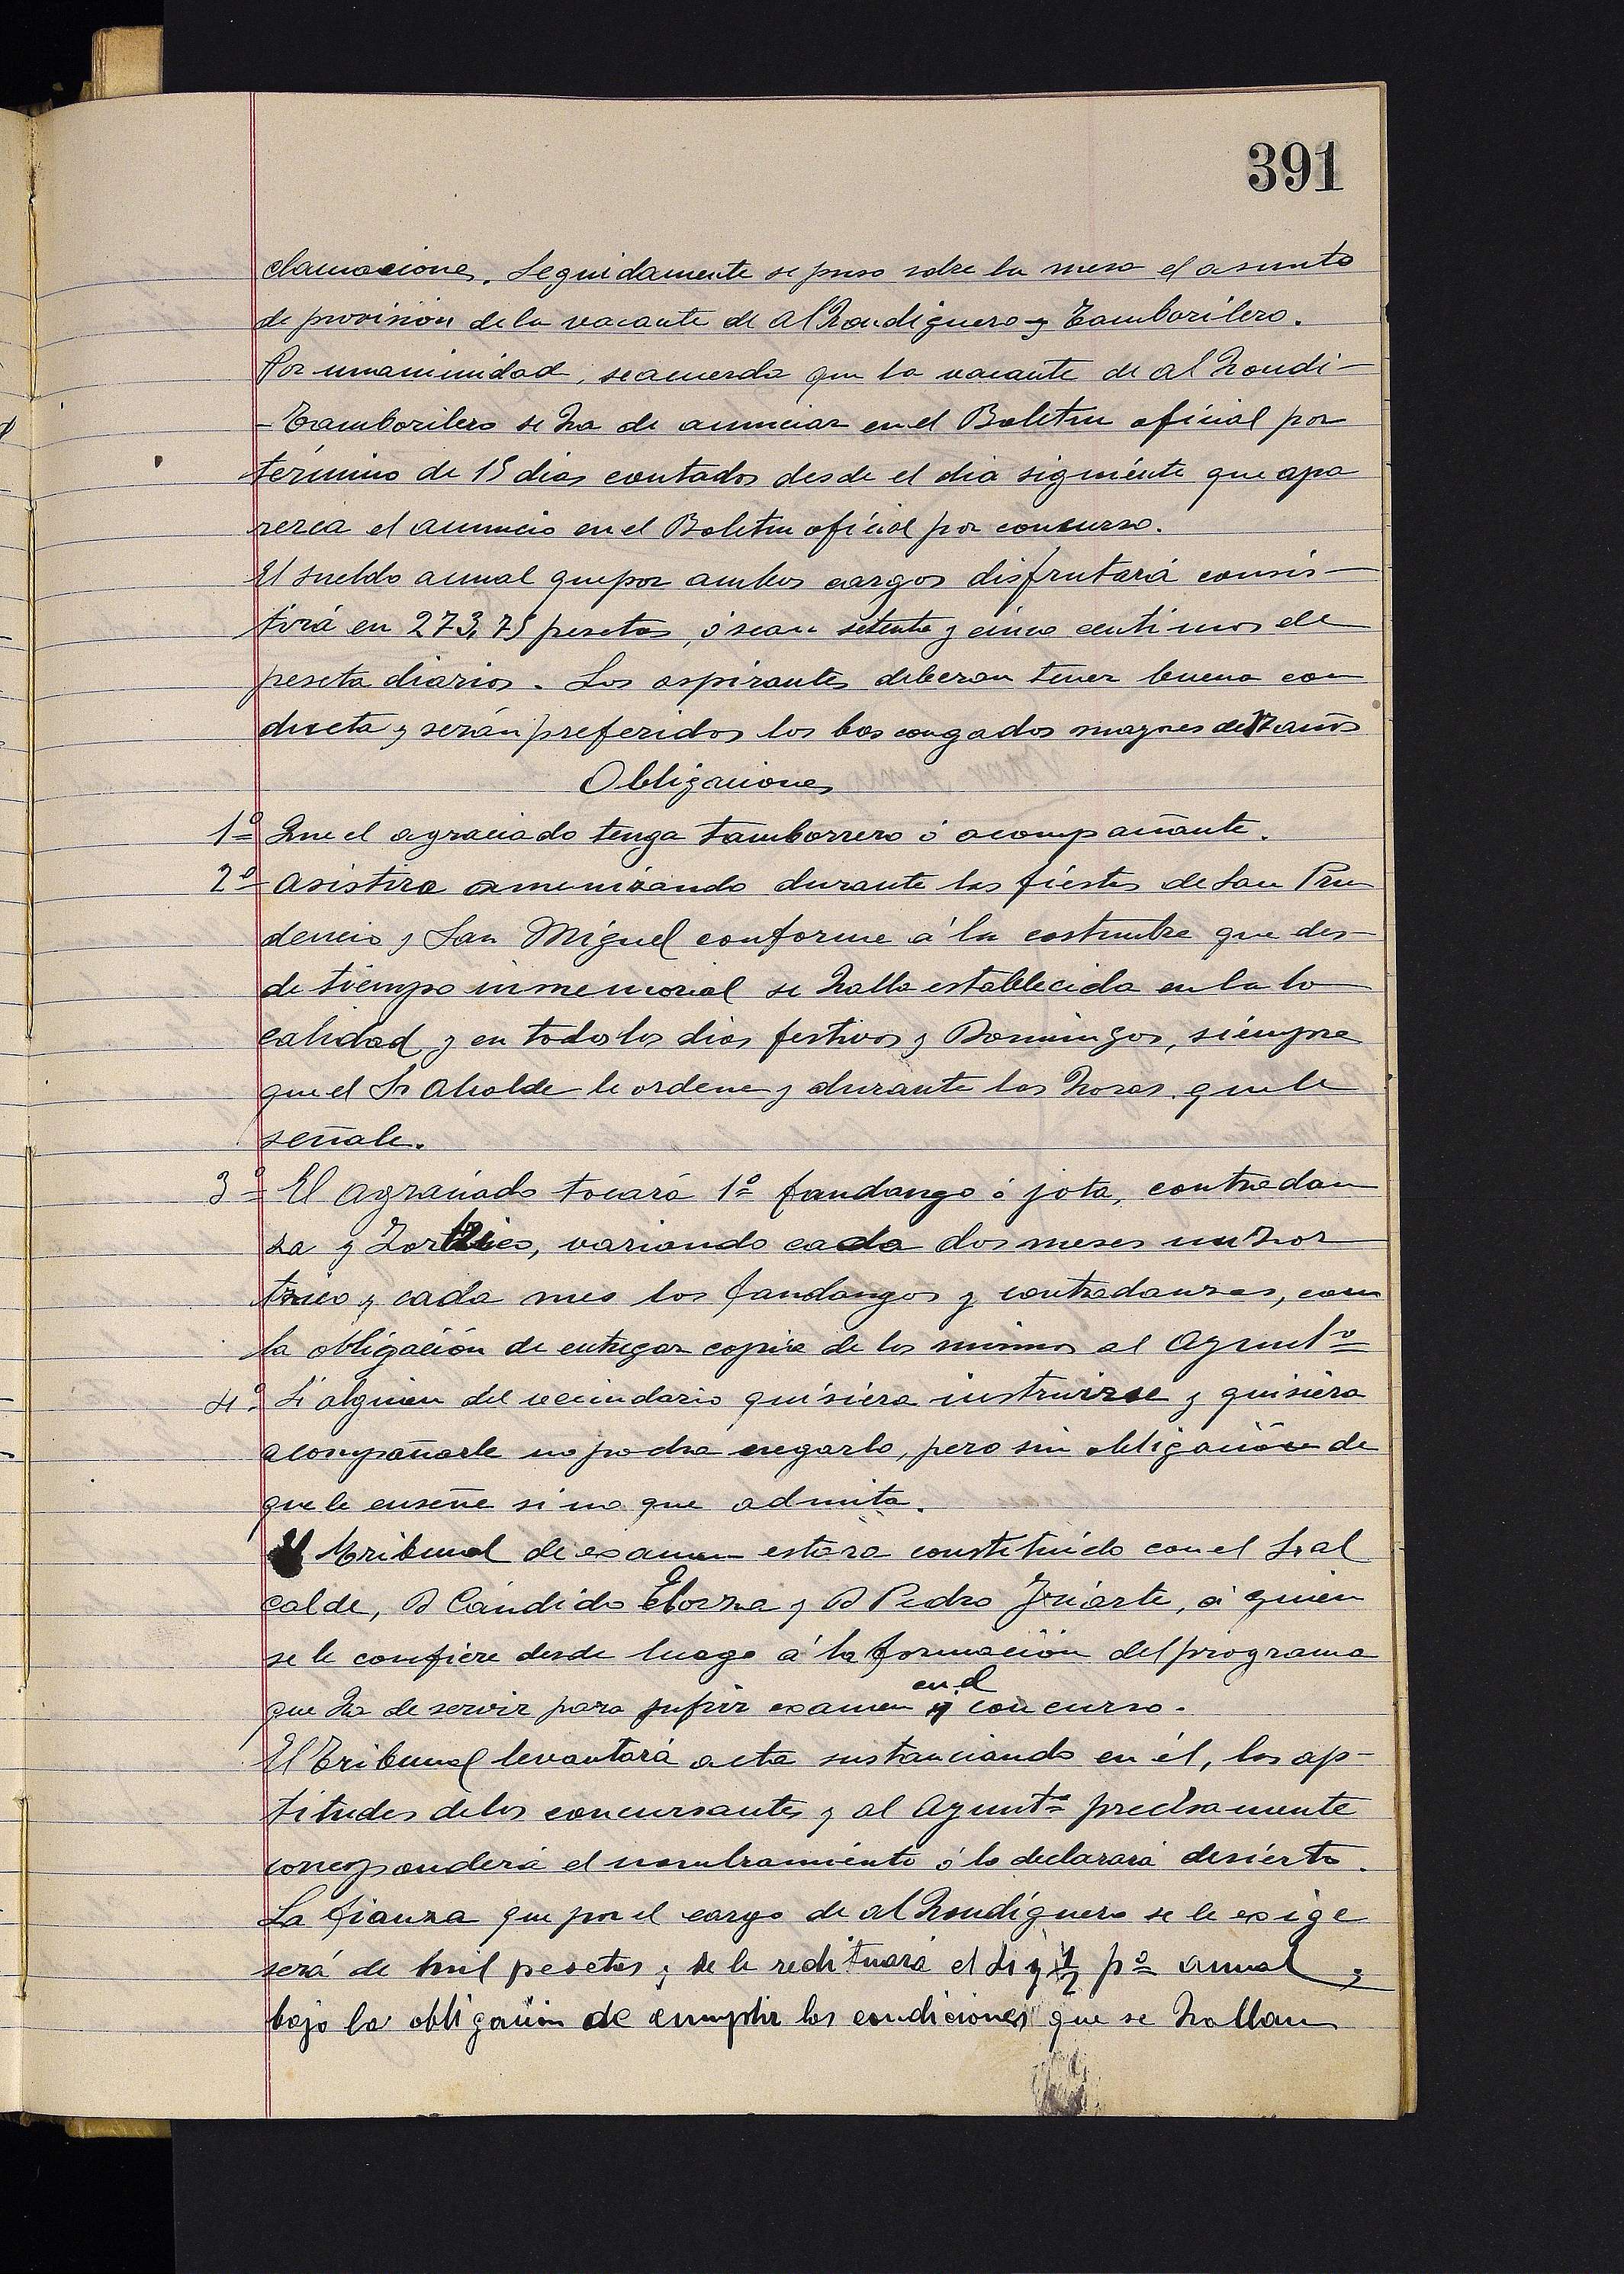 391
clamaciones. Seguidamente se puso sobre la mesa el asunto
de provision de la vacante de Alhondiguero y Tamborilero.
Por unanimidad, se acuerda que la vacante de alhondi-
-Tamborilero se ha de anunciar en el Boletin oficial por
término de 15 dias contados desde el dia siguiente que apa
rezca el anuncio en el Boletin oficial por concurso.
El sueldo anual que por ambos cargos disfrutará consis-
tirá en 273,75 pesetas, ó sean setenta y cinco centimos de
peseta diarios. Los aspirantes deberan tener buena con
ducta y serán preferidos los bascongados mayores de años
Obligaciones
1º Que el agraciado tenga tamborrero ó acompañante.
2º Asistira amenizando durante las fiestas de San Pru
dencio y San Miguel conforme á la costumbre que des-
de tiempo inmemorial se halla establecida en la lo
calidad y en todos los dias festivos y Domingos, siempre
que el Sr Alcalde le ordene y durante las horas que le
señale.
3º El agraciado tocará 1º fandango ó jota, contradan
za y Zortzico, variando cada dos meses un zor
tzico y cada mes los fandangos y contradanzas, con
la obligación de entregar copia de los mismos al Ayuntº
4º Si alguien del vecindario quisiera instruirse y quisiera
acompañarle no podra negarlo, pero sin obligación de
que le enseñe si no que admita.
El tribunal de examen estara constituido con el Sr al
calde, D Cándido Elorza y D Pedro Iriarte, á quien
se le confiere desde luego á la formación del programa
en el
que ha de servir para sufrir examen y concurso.
El Tribunal levantará acta sustanciando en él, las ap-
titudes de los concursantes y al Ayuntº precisamente
corresponderá el nombramiento ó lo declarará desierto.
La fianza que por el cargo de alhondiguero se le exige
será de mil pesetas y se le redituará el 4 y 1/2 pº anual,
bajo la obligación de cumplir las condiciones que se hallan